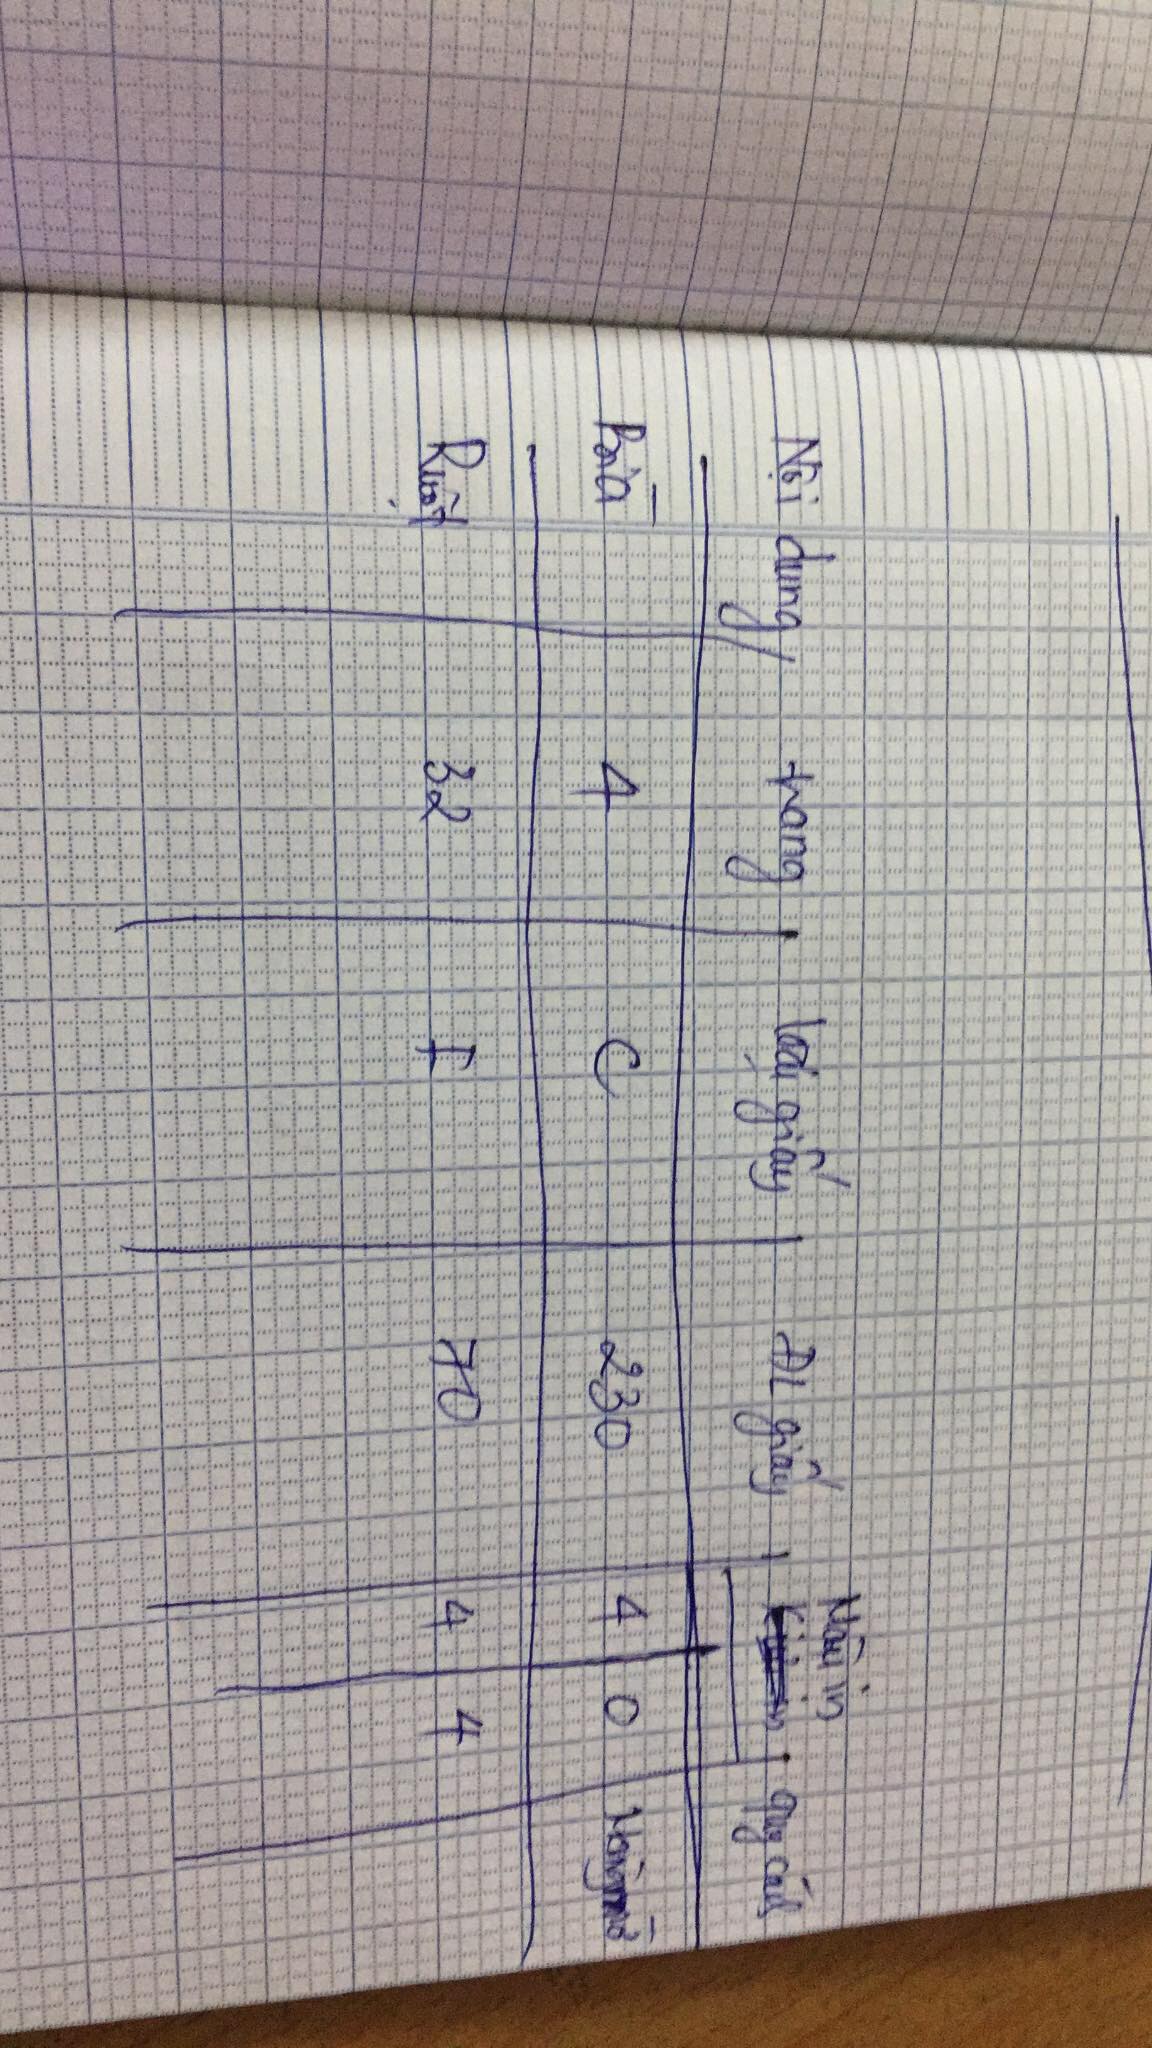 Nội dung trang loại giấy ĐL giấy Màu in Quy cách
Bìa 4 C 230 4 0 Màng mờ
Ruột 32 I 70 4 4